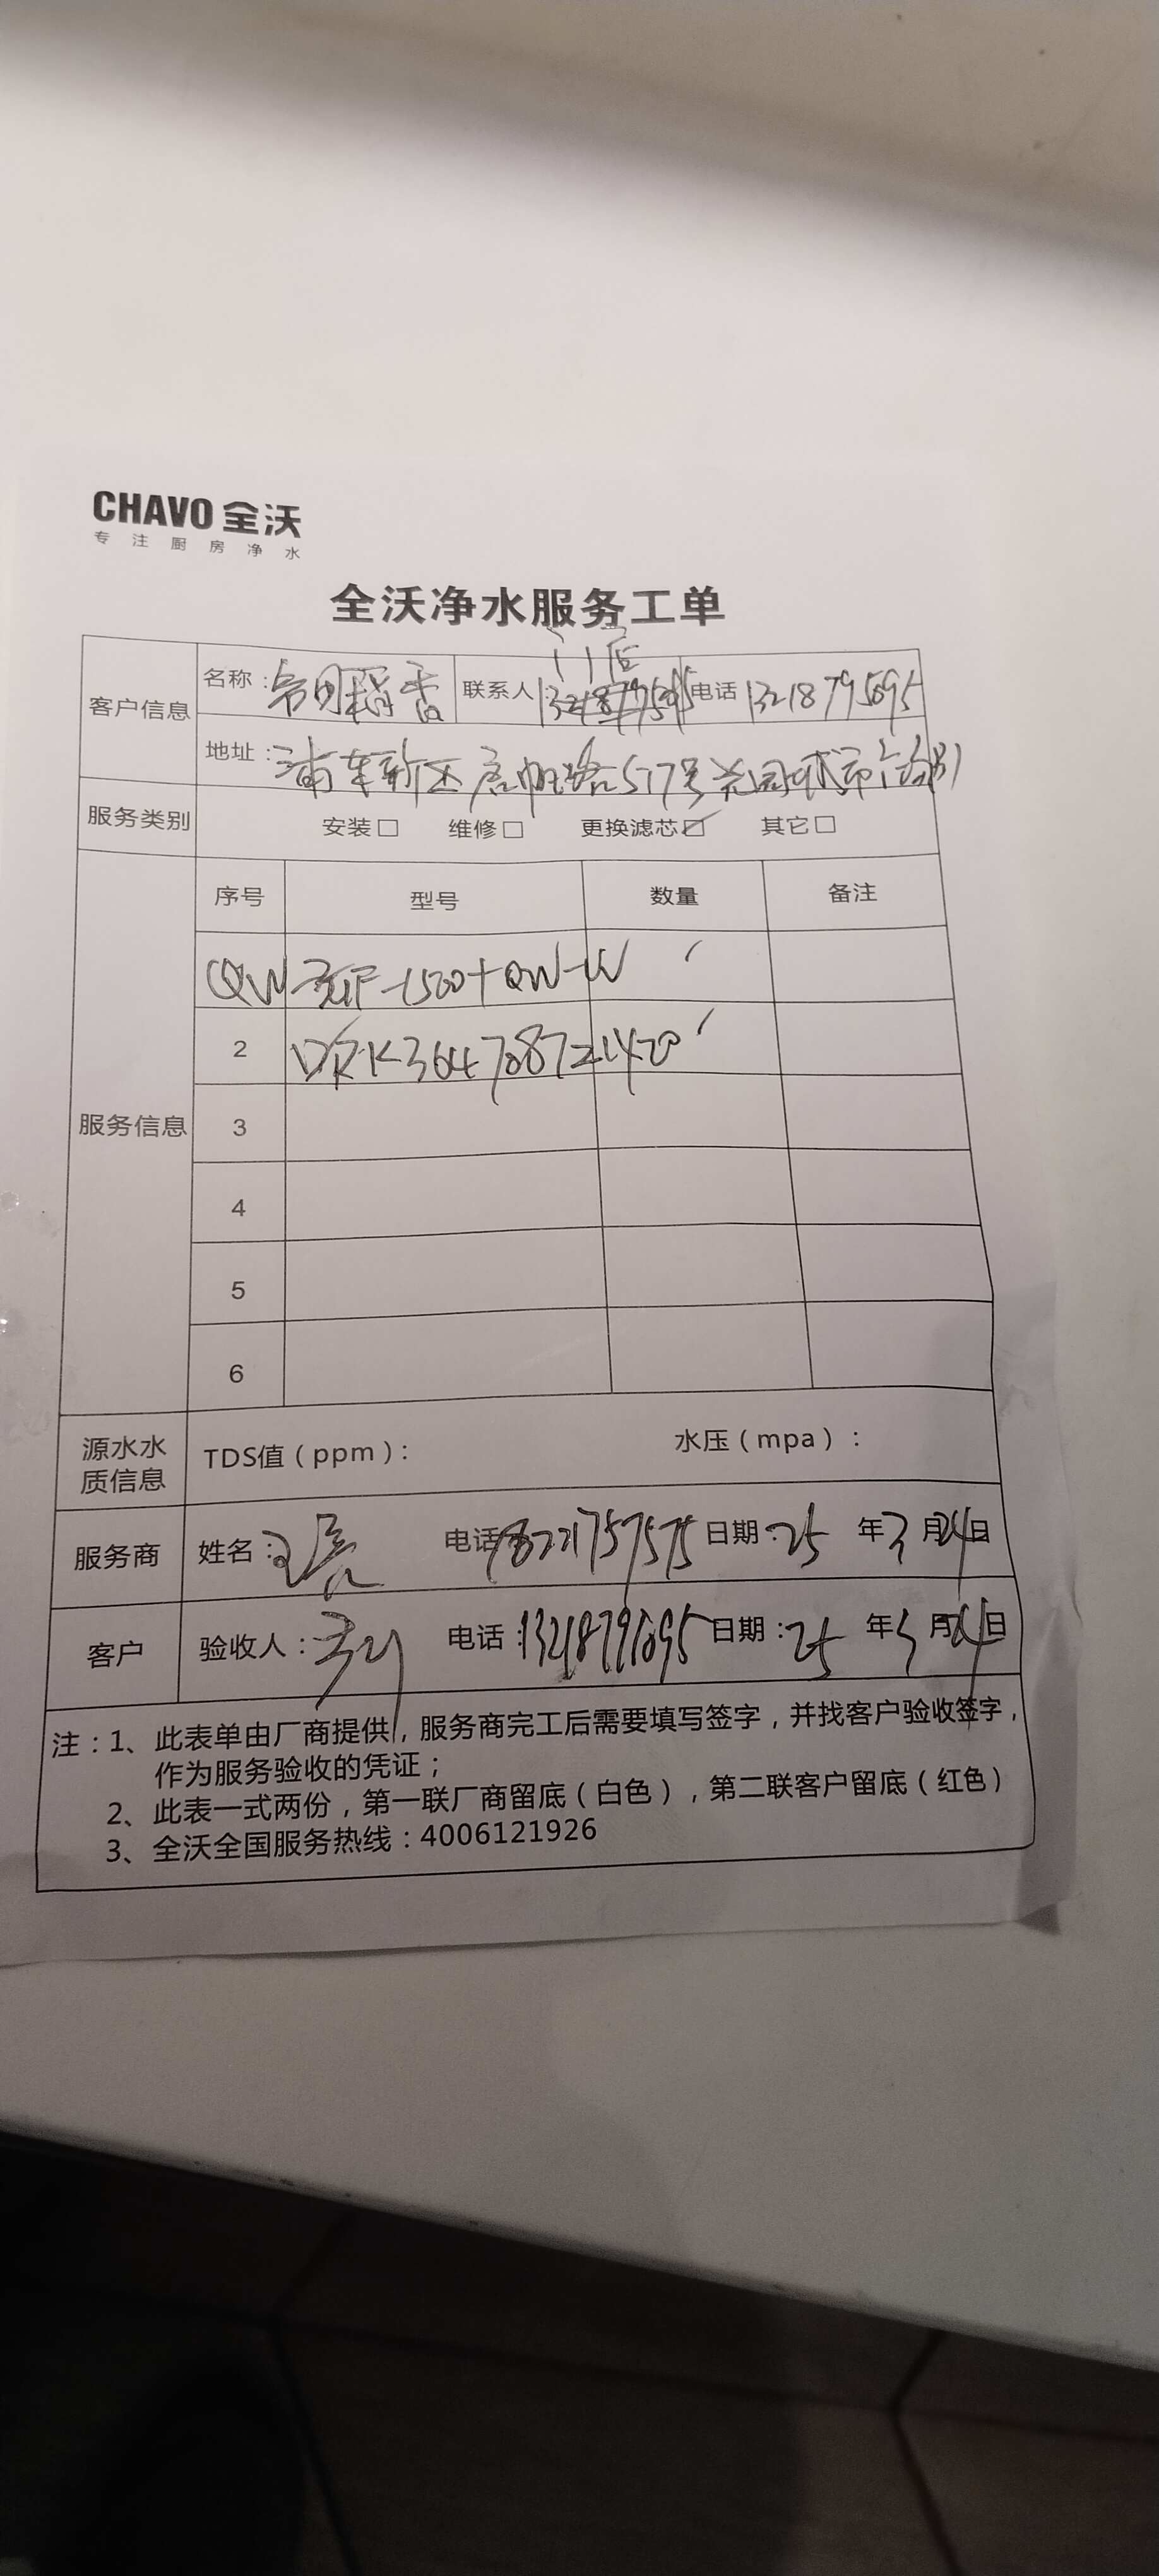 CHAVO 全沃
专注厨房净水
全沃净水服务工单
门店
客户信息 名称： 稻香 联系人： 电话 13218795695
地址：浦东新区唐帆路517号 花园城市
服务类别 安装□ 维修□ 更换滤芯☑ 其它□
服务信息 序号 型号 数量 备注
QW- -1500+QW-W 1
2 DRK364708721420 1
3
4
5
6
源水水质信息 TDS值（ppm）： 水压（mpa）：
服务商 姓名：王亮 电话 18221757575 日期：25 年 3 月 24 日
客户 验收人： 电话：13218795695 日期：25 年 3 月 24 日
注：1、此表单由厂商提供，服务商完工后需要填写签字，并找客户验收签字，
作为服务验收的凭证；
2、此表一式两份，第一联厂商留底（白色），第二联客户留底（红色）
3、全沃全国服务热线：4006121926